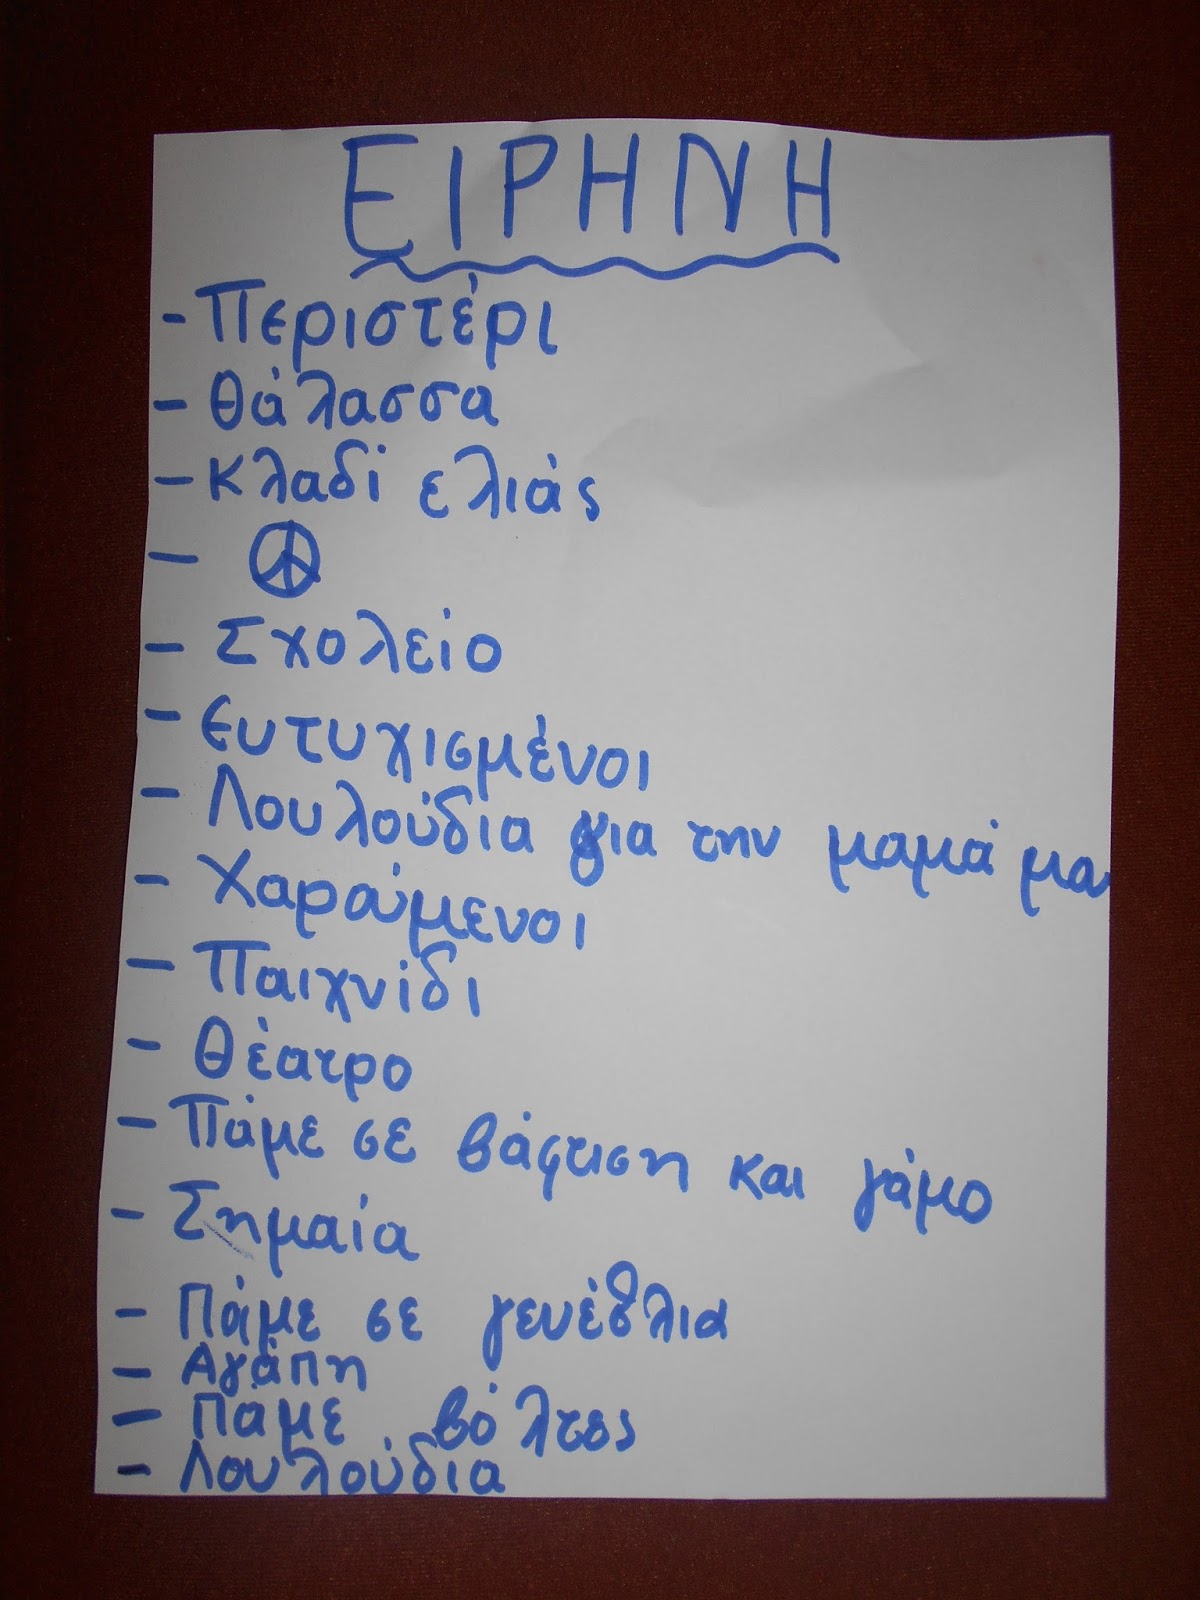 ΕΙΡΗΝΗ
- Περιστέρι
- Θάλασσα
- Κλαδί ελιάς
- ☮
- Σχολείο
- Ευτυχισμένοι
- Λουλούδια για την μαμά μου
- Χαρούμενοι
- Παιχνίδι
- Θέατρο
- Πάμε σε βάφτιση και γάμο
- Σημαία
- Πάμε σε γενέθλια
- Αγάπη
- Πάμε βόλτες
- Λουλούδια